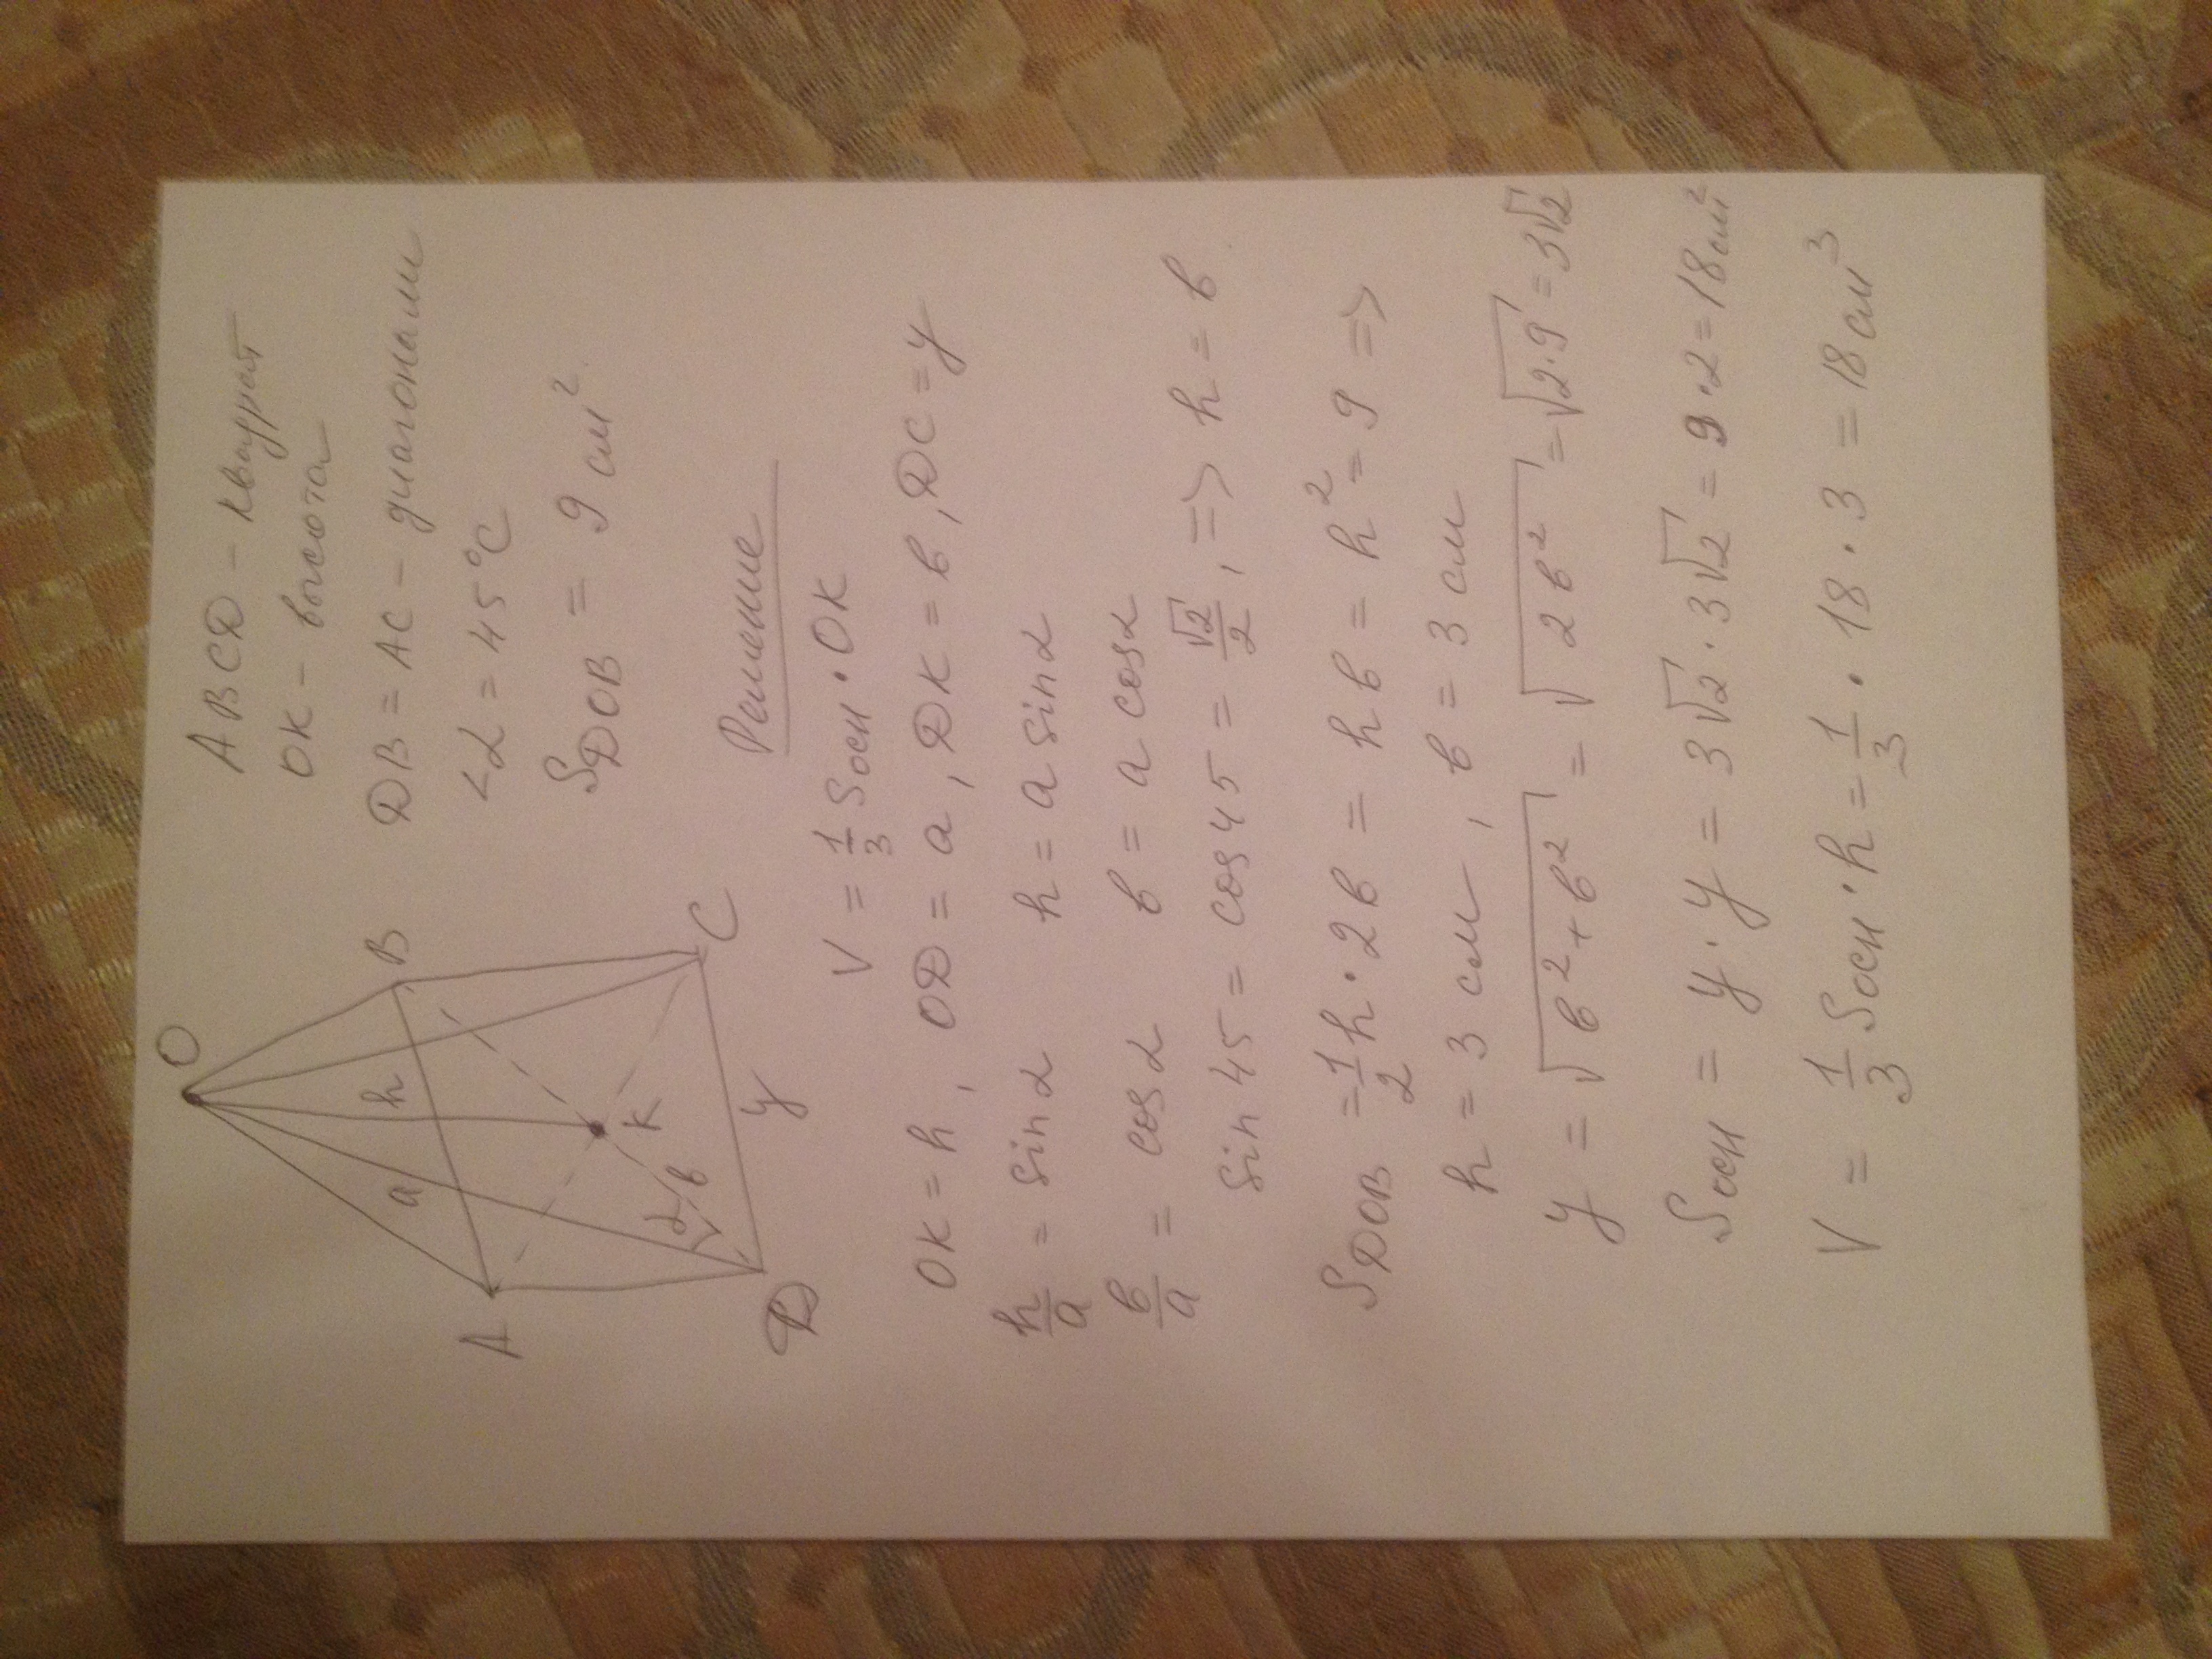 O
A
B
C
D
a
h
K
α
в
y
ABCD - квадрат
OK - высота
DB = AC - диагонали
<α = 45°C
S DOB = 9 см²
Решение
V = 1/3 Sосн · OK
OK = h, OD = a, DK = в, DC = y
h/a = sin α h = a sin α
в/a = cos α в = a cos α
sin 45 = cos 45 = √2/2, => h = в
S DOB = 1/2 h · 2в = hв = h² = 9 =>
h = 3 см, в = 3 см
y = √(в² + в²) = √(2в²) = √(2·9) = 3√2
Sосн = y · y = 3√2 · 3√2 = 9 · 2 = 18 см²
V = 1/3 Sосн · h = 1/3 · 18 · 3 = 18 см³